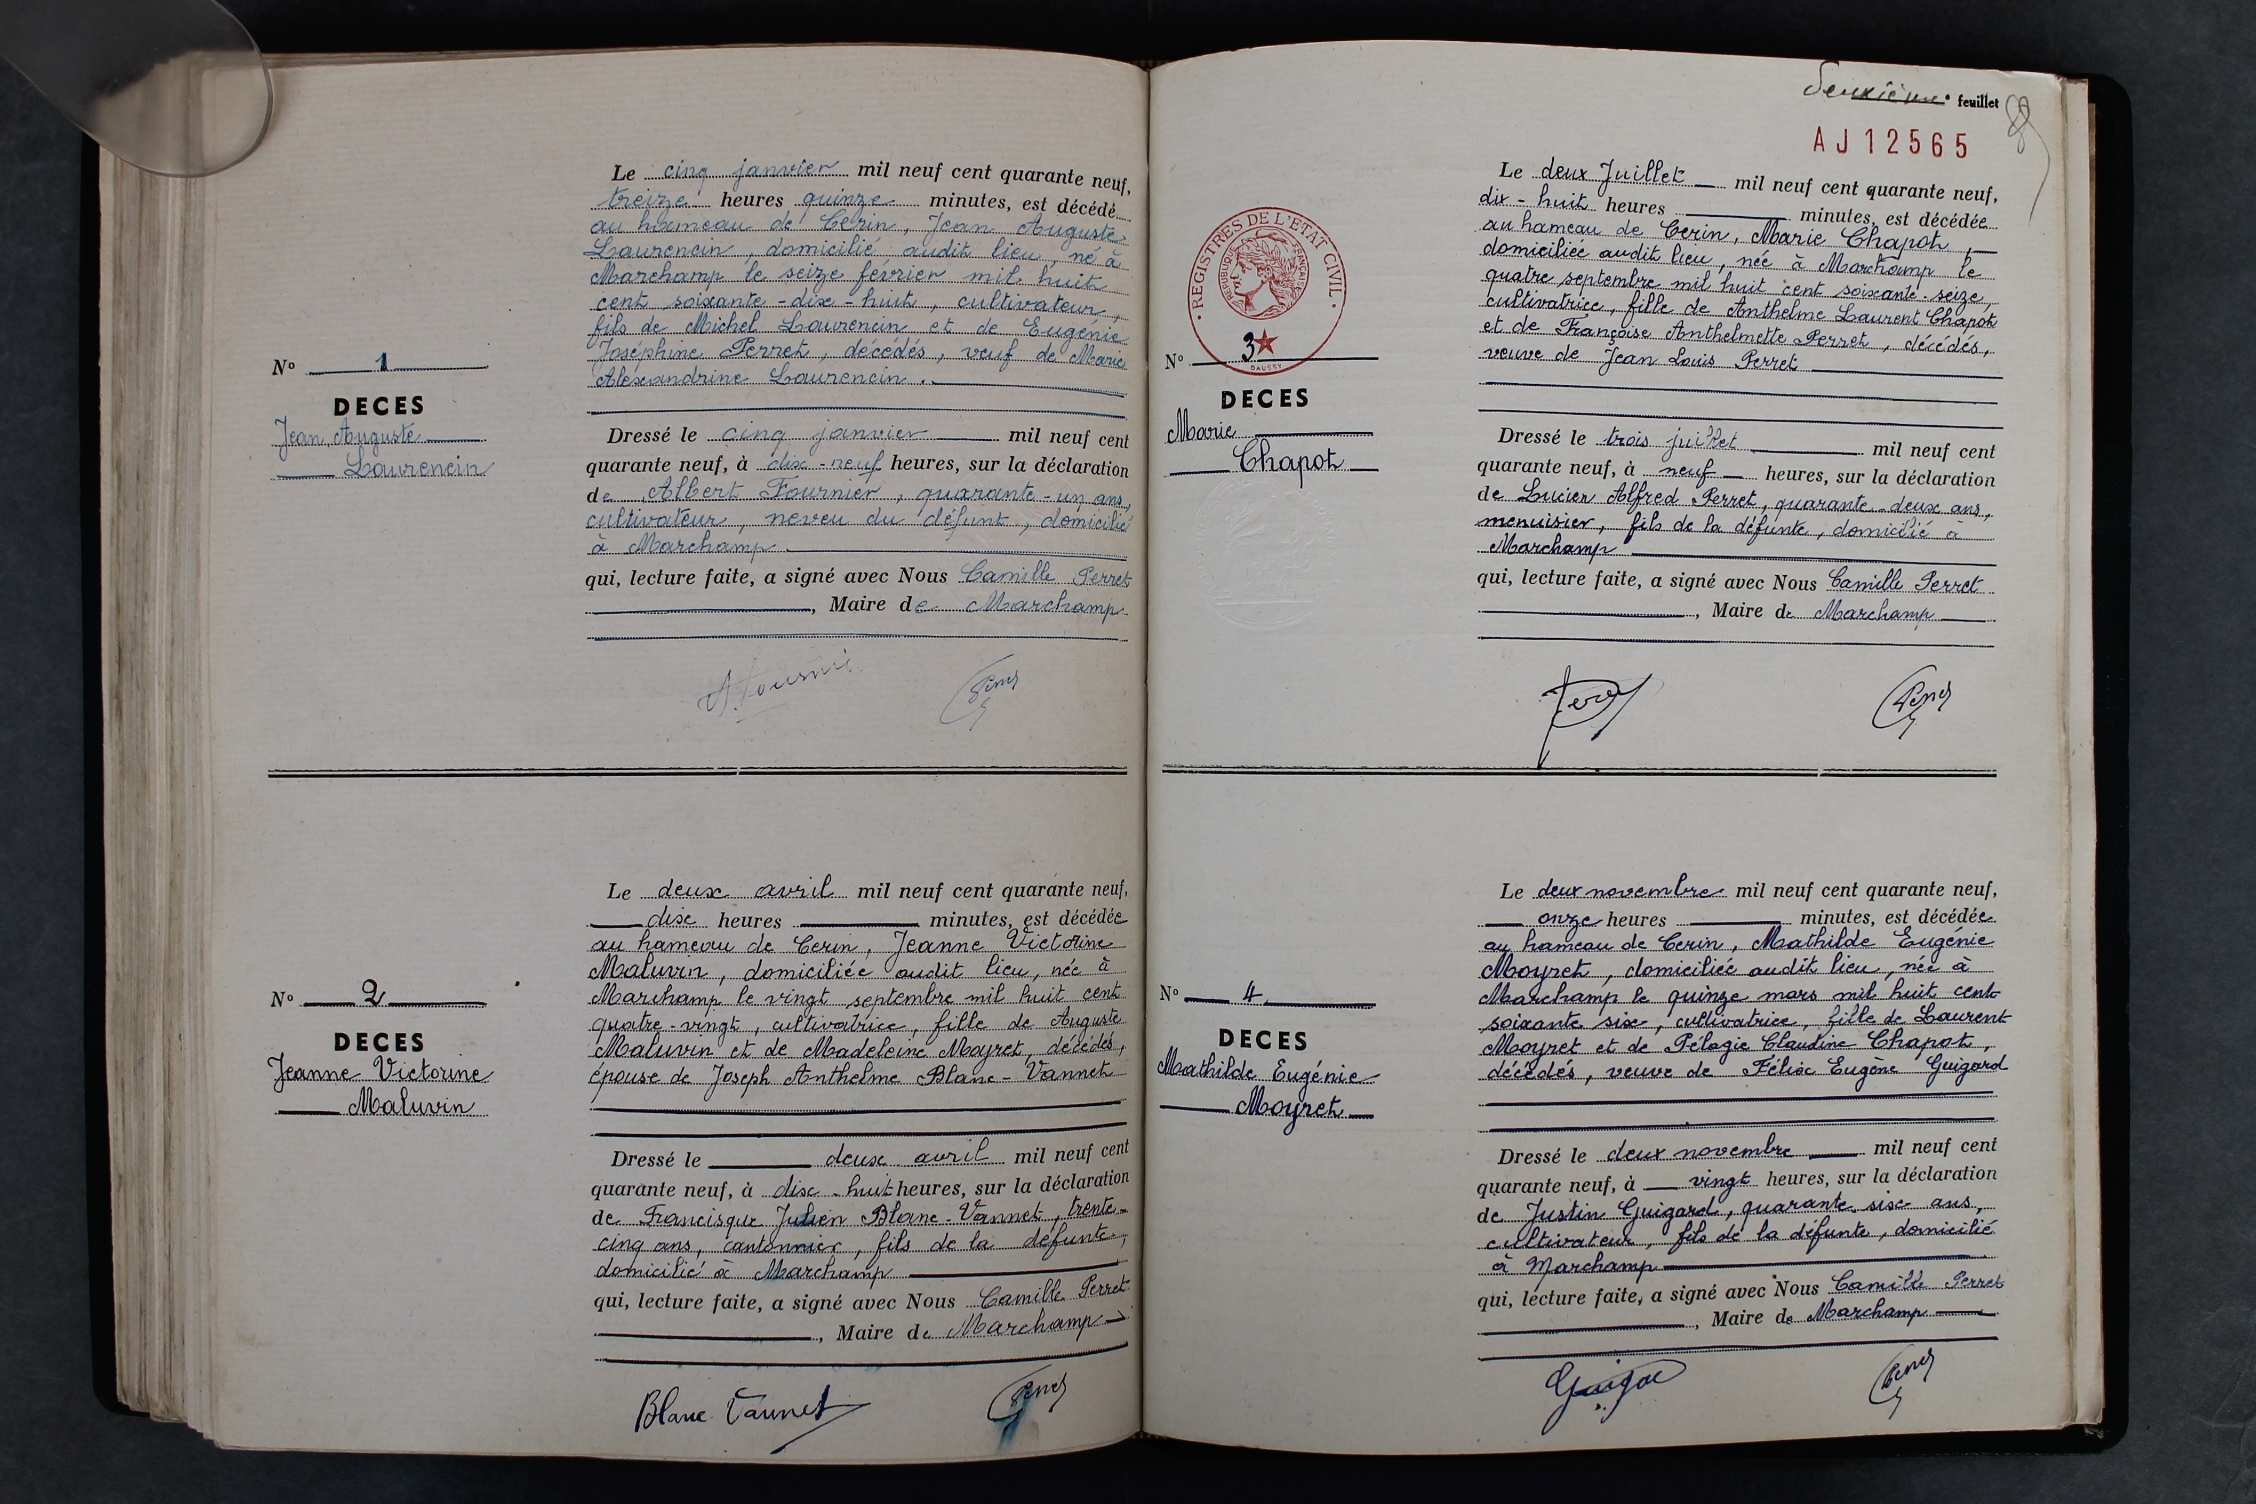 Le cinq janvier mil neuf cent quarante neuf,
treize heures quinze minutes, est décédé
au hameau de Cerin, Jean Auguste
Laurencin, domicilié audit lieu, né à
Marchamp le seize février mil huit
cent soixante-dix-huit, cultivateur,
fils de Michel Laurencin et de Eugénie
Joséphine Perret, décédés, veuf de Marie
Alexandrine Laurencin.
No 1
DECES
Jean Auguste
Laurencin
Dressé le cinq janvier mil neuf cent
quarante neuf, à dix-neuf heures, sur la déclaration
de Albert Fournier, quarante-un ans,
cultivateur, neveu du défunt, domicilié
à Marchamp
qui, lecture faite, a signé avec Nous Camille Perret
, Maire de Marchamp
Le deux avril mil neuf cent quarante neuf,
dix heures minutes, est décédée
au hameau de Cerin, Jeanne Victorine
Maluvin, domiciliée audit lieu, née à
Marchamp le vingt septembre mil huit cent
quatre-vingt, cultivatrice, fille de Auguste
Maluvin et de Madeleine Moyret, décédés,
épouse de Joseph Anthelme Blanc-Vannet
No 2
DECES
Jeanne Victorine
Maluvin
Dressé le deux avril mil neuf cent
quarante neuf, à dix-huit heures, sur la déclaration
de Francisque Julien Blanc-Vannet, trente-
cinq ans, cantonnier, fils de la défunte,
domicilié à Marchamp
qui, lecture faite, a signé avec Nous Camille Perret
, Maire de Marchamp
Blanc Vannet
Deuxième feuillet
AJ12565
Le deux Juillet mil neuf cent quarante neuf,
dix-huit heures minutes, est décédée
au hameau de Cerin, Marie Chapot,
domiciliée audit lieu, née à Marchamp le
quatre septembre mil huit cent soixante-seize,
cultivatrice, fille de Anthelme Laurent Chapot
et de Françoise Anthelmette Perret, décédés,
veuve de Jean Louis Perret
REGISTRES DE L'ETAT CIVIL
REPUBLIQUE FRANÇAISE
DAUSSY
No 3
DECES
Marie
Chapot
Dressé le trois juillet mil neuf cent
quarante neuf, à neuf heures, sur la déclaration
de Lucien Alfred Perret, quarante-deux ans,
menuisier, fils de la défunte, domicilié à
Marchamp
qui, lecture faite, a signé avec Nous Camille Perret
, Maire de Marchamp
Le deux novembre mil neuf cent quarante neuf,
onze heures minutes, est décédée
au hameau de Cerin, Mathilde Eugénie
Moyret, domiciliée audit lieu, née à
Marchamp le quinze mars mil huit cent
soixante six, cultivatrice, fille de Laurent
Moyret et de Pélagie Claudine Chapot,
décédés, veuve de Félix Eugène Guigard
No 4
DECES
Mathilde Eugénie
Moyret
Dressé le deux novembre mil neuf cent
quarante neuf, à vingt heures, sur la déclaration
de Justin Guigard, quarante six ans,
cultivateur, fils de la défunte, domicilié
à Marchamp
qui, lecture faite, a signé avec Nous Camille Perret
, Maire de Marchamp